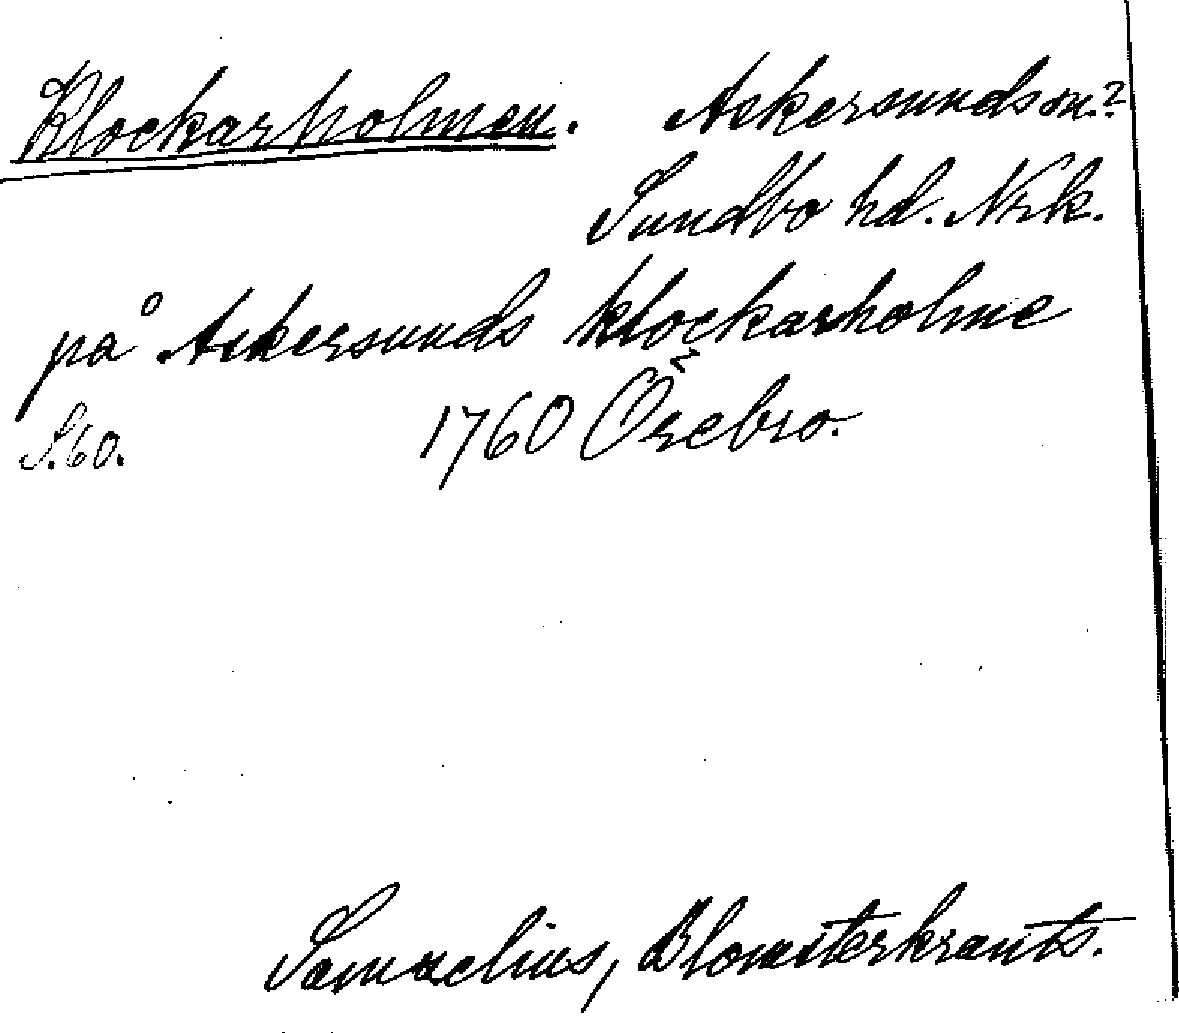 Klockarholmen. Askersunds sn.?
Sundbo hd. Nrk.
på Askersunds klockarholme
S. 60. 1760 Örebro.
Samzelius, Blomsterkrants.